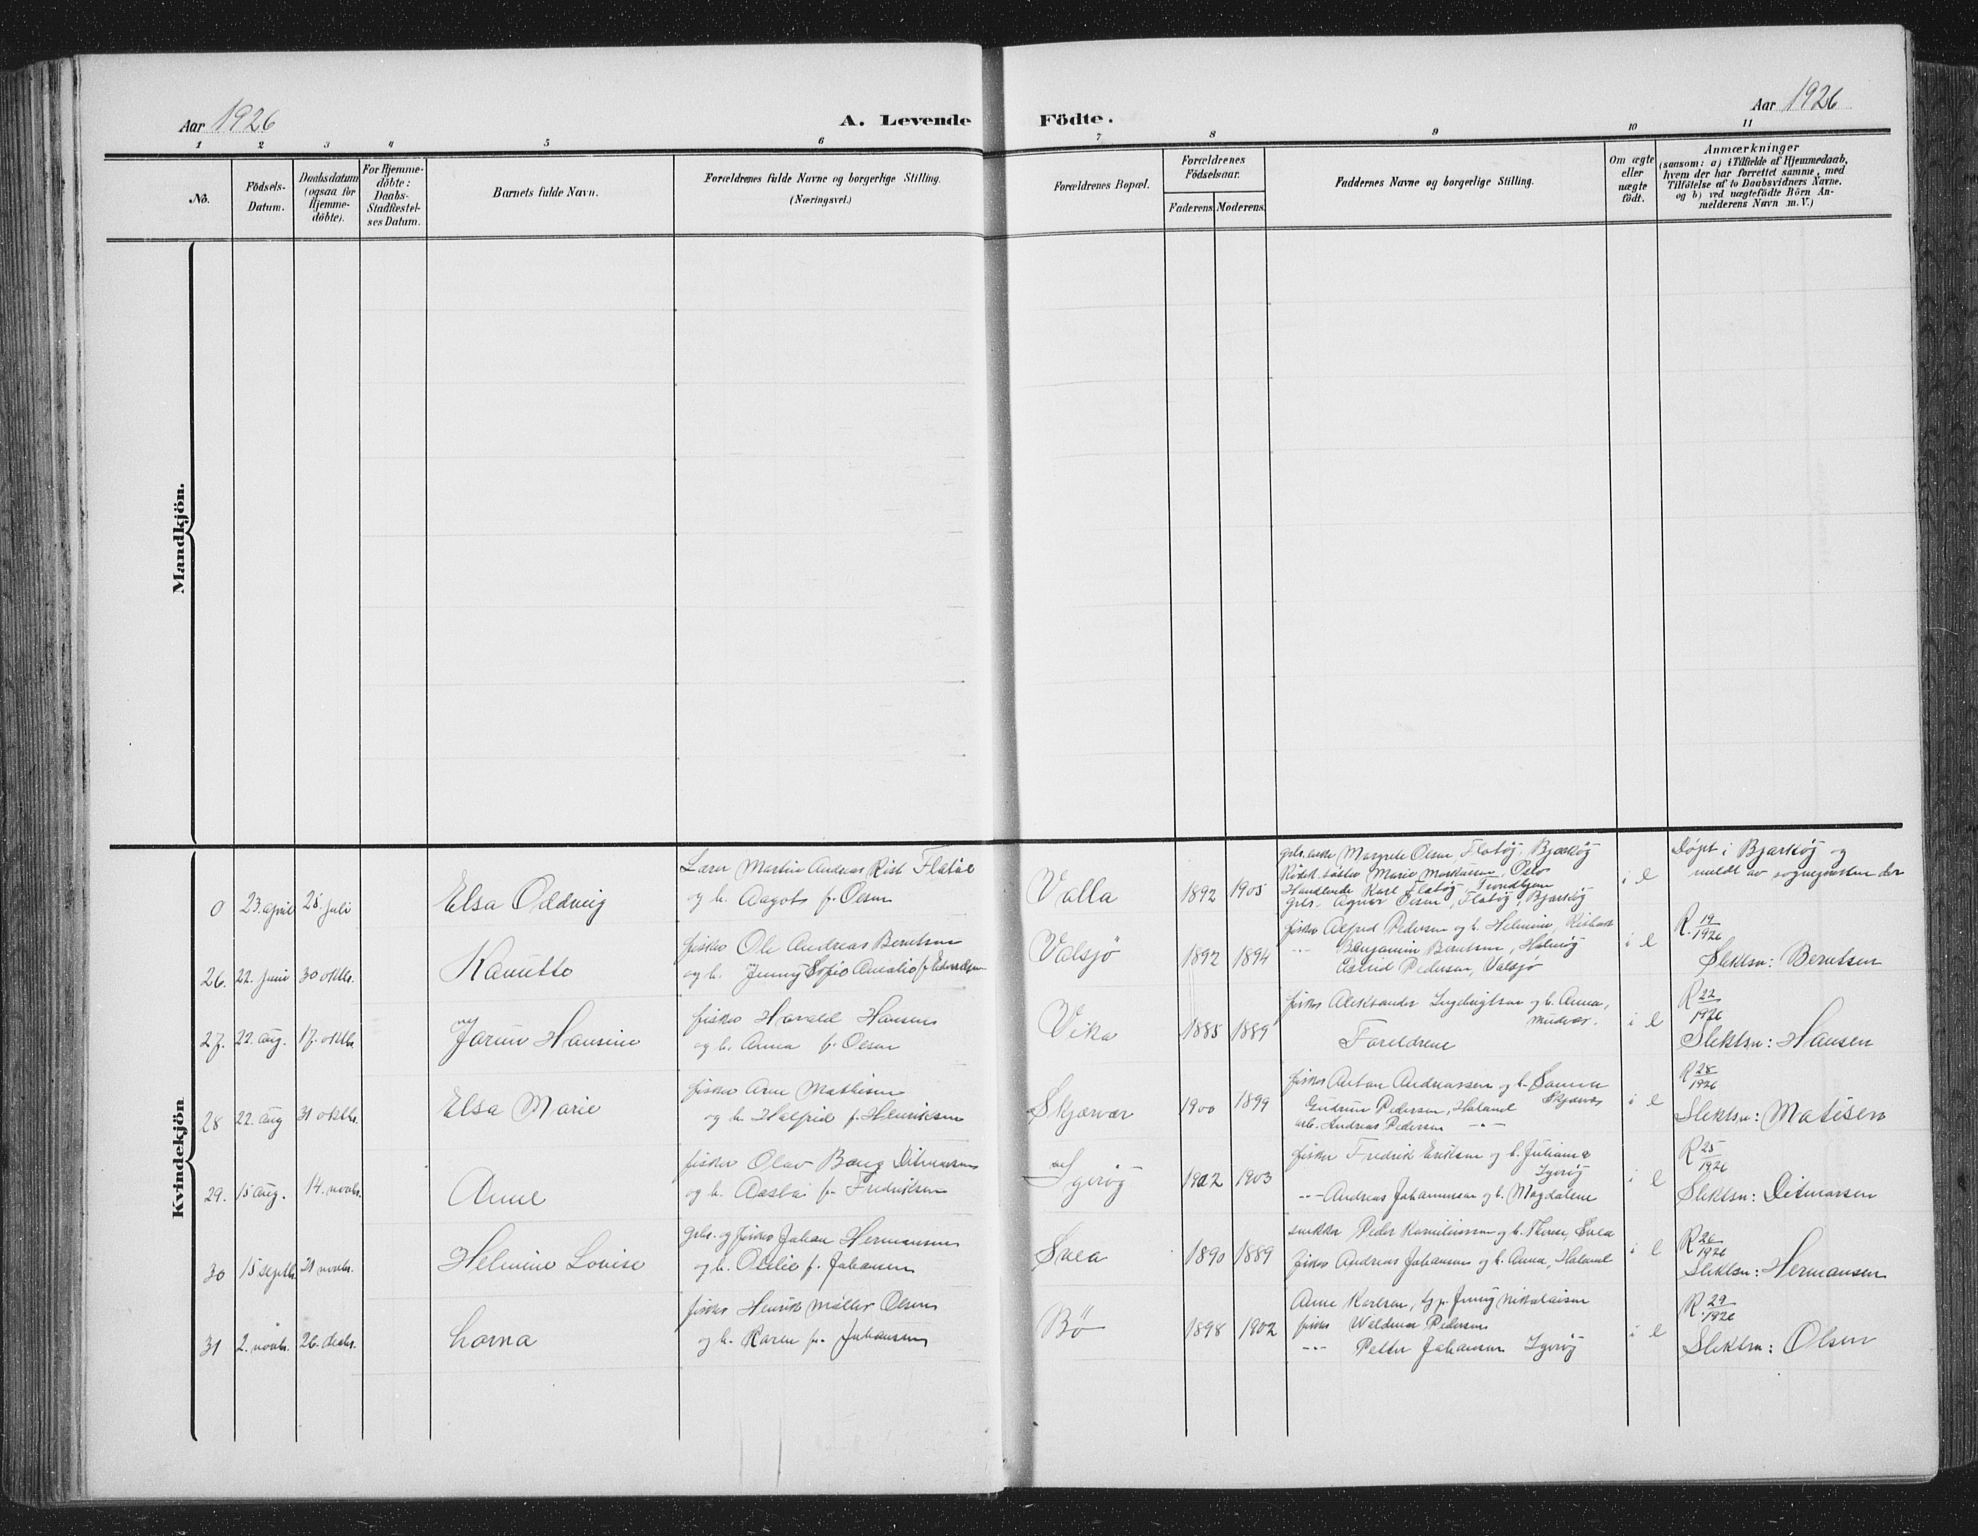 Aar 1926
A. Levende Födte.
Aar 1926
1 2 3 4 5 6 7 8 9 10 11
No.
Födsels-
Datum.
Daabsdatum
(ogsaa for
Hjemme-
döbte).
For Hjemme-
döbte:
Daabs-
Stadfestel-
ses Datum.
Barnets fulde Navn.
Forældrenes fulde Navne og borgerlige Stilling.
(Næringsvei.)
Forældrenes Bopæl.
Forældrenes
Födselsaar.
Faderens. Moderens.
Faddernes Navne og borgerlige Stilling.
Om ægte
eller
uægte
födt.
Anmærkninger
(saasom: a) i Tilfælde af Hjemmedaab,
hvem der har forrettet samme, med
Tilföielse af to Daabsvidners Navne.
og b) ved uægtefödte Börn An-
melderens Navn m. V.)
Mandkjön.
Kvindekjön
0 23. april 25. juli Elsa Oddveig
Lærer Martin Andreas Rist Flatöe
og h. Aagot f. Olsen
Valla 1892 1905
Margrete Olsen, Flatøy, Bjarkøy
Marie Markussen, Oslo
Handlende Karl Flatøy, Trondhjem
Agnar Olsen, Flatøy, Bjarkøy
e
Døpt i Bjarkøy og
meldt av sognepresten der
26. 22. juni 30 oktbr. Kanutte
fisker Ole Andreas Berntsen
og h. Jenny Sofie Amalie f.
Valsjø 1892 1894
fisker Alfred Pedersen og h. Helmine,
-"- Benjamin Berntsen,
Astrid Pedersen, Valsjø
e
R. 19/1926
Slektsn: Berntsen
27. 22. aug. 17. oktbr. Jorun Hansine
fisker Harald Hansen
og h. Anna f. Olsen
Vika 1885 1889
fisker Aleksander Ingebrigtsen og h. Anna,
Foreldrene
i e
R 22/1926
Slektsn: Hansen
28 22. aug 31 oktbr. Elsa Marie
fisker Arne Mathisen
og h. Halfrid f. Henriksen
Skjærvær 1900 1899
fisker Anton Andreassen og h.
Gudrun Pedersen,
arb. Andreas Pedersen -"-
i e
R 28/1926
Slektsn: Matisen
29. 15 aug. 14. novbr. Anne
fisker Olav Bang Ditmarsen
og h. Aasta f. Fredriksen
Igerøy 1902 1903
fisker Fredrik Eriksen og h. Juliane
Igerøy
-"- Andreas Johannesen og h. Magdalene
i e
R 25/1926
Slektsn: Ditmarsen
30 15 septbr. 21 novbr. Helmine Lovise
Grbr. og fisker Johan Hermansen
og h. Otilie f. Johansen
Svea 1890 1889
snekker Peder Kornelius­sen og h. Therese, Svea
fisker Andreas Johansen og h. Anna,
i e
R 26/1926
Slektsn: Hermansen
31 2. novbr. 26. desbr. Lorna
fisker Henrik Møller Olsen
og h. Karen f. Johansen
Bø 1898 1902
Anne Karlsen, Jenny Nikolaisen
fisker Waldemar Pedersen
-"- Petter Johansen Igerøy
i e
R. 29/1926
Slektsn: Olsen